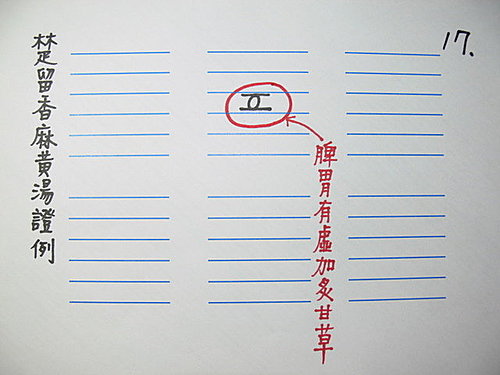 17.
楚留香麻黃湯證例
脾胃有虛加炙甘草